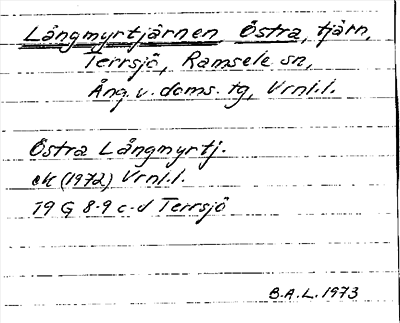 Långmyrtjärnen, Östra, tjärn,
Terrsjö, Ramsele sn,
Ång. v. doms. tg, Vrnl.l.
Östra Långmyrtj.
ek (1972) Vrnl.l.
19 G 8-9 c-d Terrsjö
B.A.L. 1973